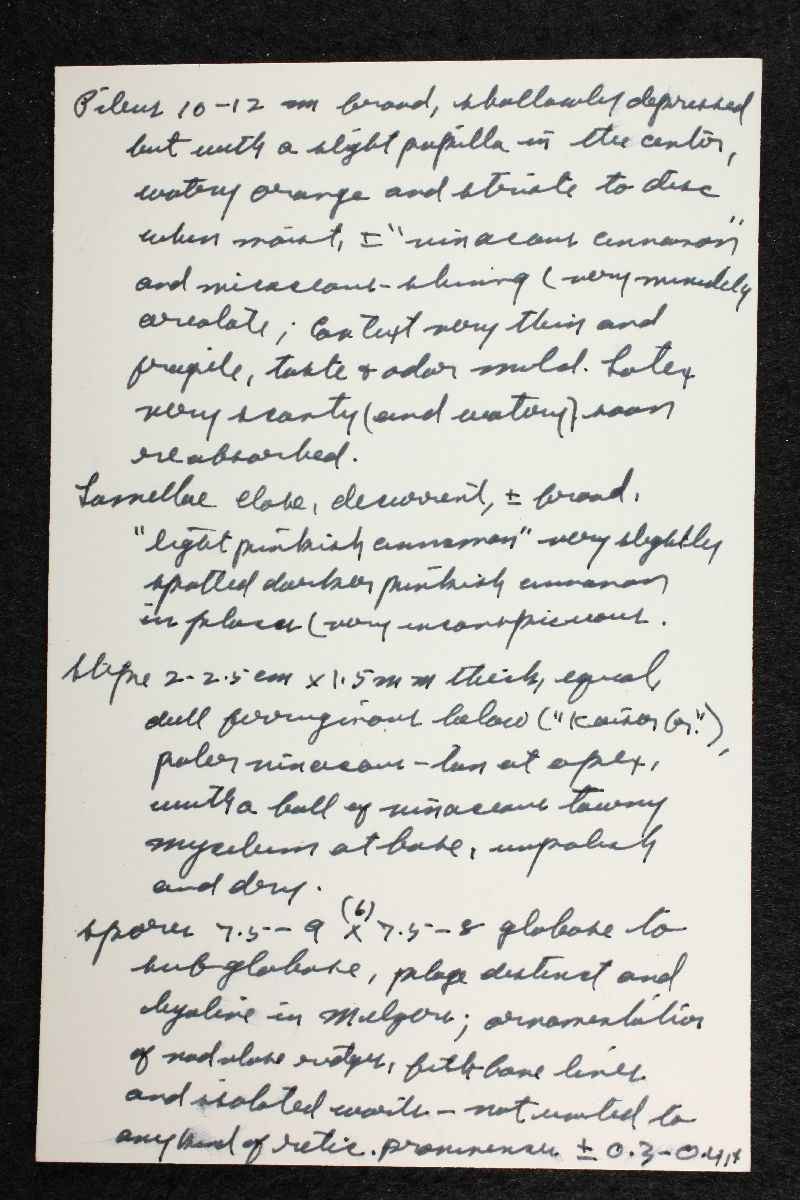 Pileus 10-12 mm broad, shallowly depressed
but with a slight papilla in the center,
watery orange and striate to disc
when moist, ± "vinaceous cinnamon"
and micaceous-shining (very minutely
areolate; Context very thin and
fragile, taste & odor mild. Latex
very scanty (and watery) soon
reabsorbed.
Lamellae close, decurrent, ± broad,
"light pinkish cinnamon" very slightly
spotted darker pinkish cinnamon
in places (very inconspicuous.
Stipe 2-2.5 cm x 1.5 mm thick, equal,
dull ferruginous below ("Kaiser br."),
paler vinaceous-tan at apex,
with a ball of vinaceous tawny
mycelium at base, unpolish
and dry.
(6)
spores 7.5-9 x 7.5-8 globose to
subglobose, plage distinct and
hyaline in Melzers; ornamentation
of nodulose ridges, fine lines
and isolated warts - not united to
any kind of retic. prominences ± 0.3-0.4µ